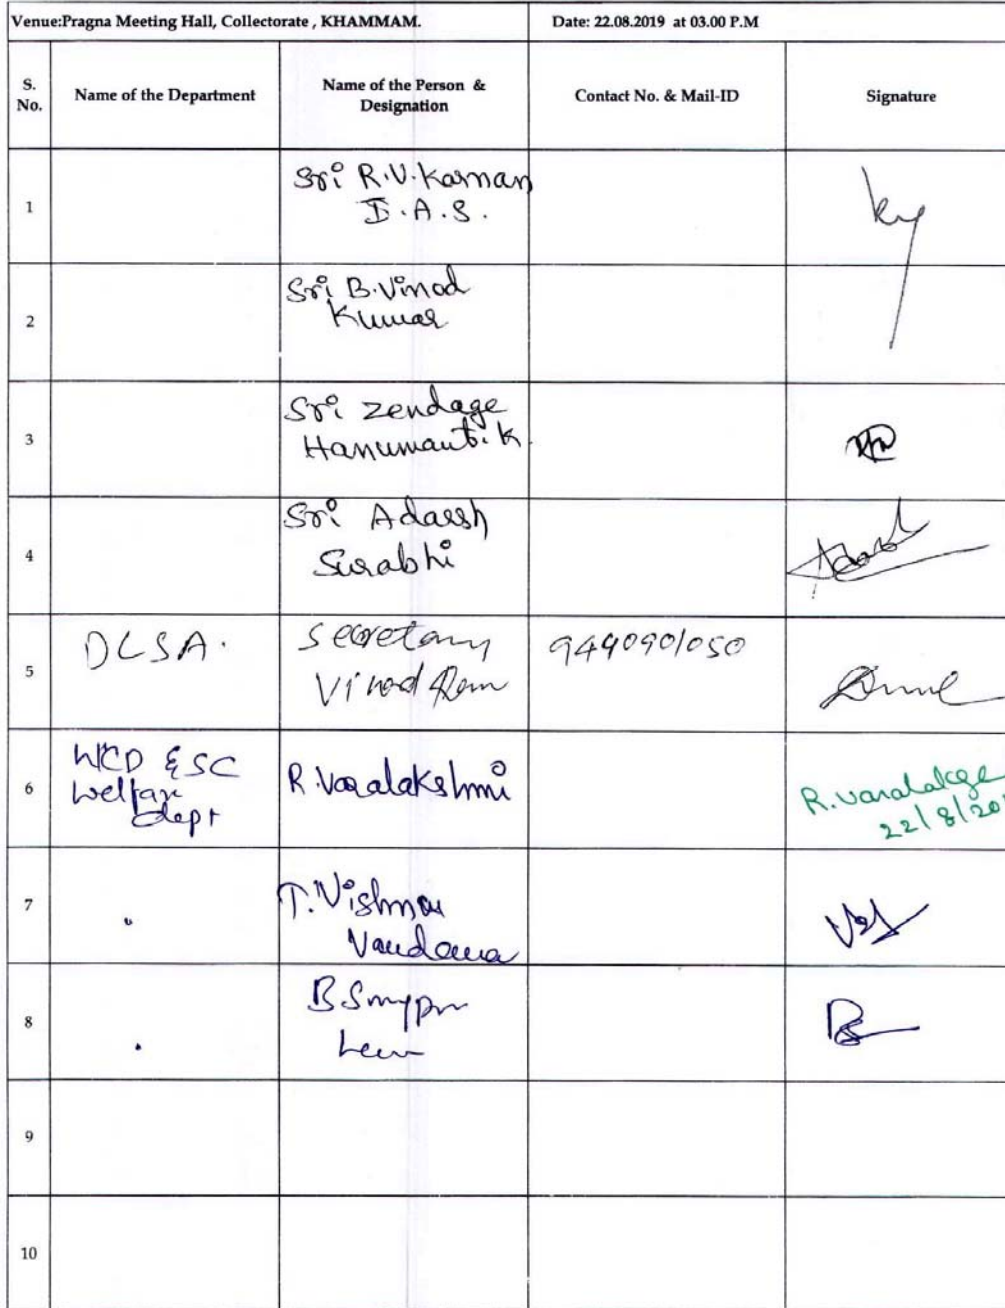 Venue:Pragna Meeting Hall, Collectorate , KHAMMAM. Date: 22.08.2019 at 03.00 P.M
S. No. Name of the Department Name of the Person & Designation Contact No. & Mail-ID Signature
1 Sri R.V. Karnan
I.A.S.
2 Sri B. Vinod
Kumar
3 Sri Zendage
Hanumant. K
4 Sri Adarsh
Surabhi
5 DLSA. Secretary 9440901050
Vinod
6 WCD & SC R. Varalakshmi
Welfare
dept
22/8/20
7 " T. Vishnu
Vandana
8 "
9
10